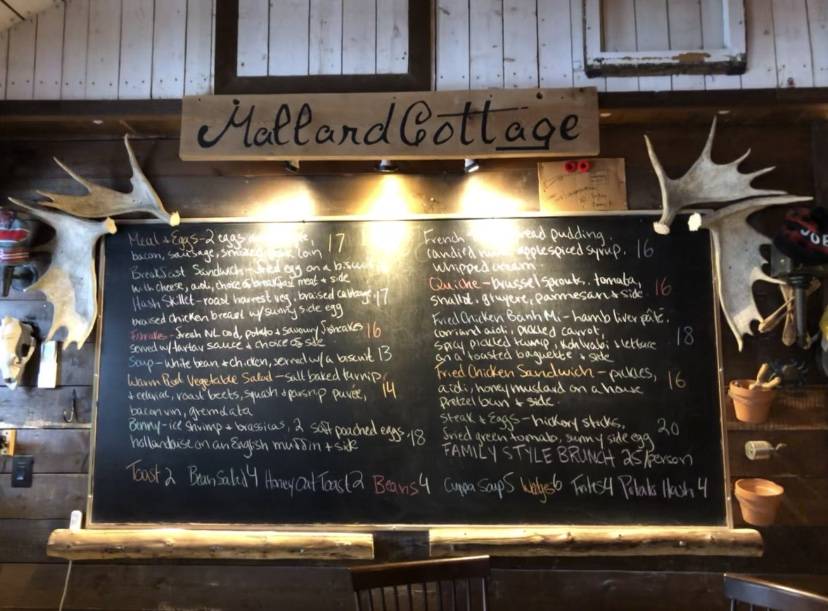 Mallard Cottage
Meat & Eggs - 2 eggs
bacon, sausage, smoked loin 17
Breakfast Sandwich - fried egg on a biscuit
with cheese, aioli, choice of breakfast meat & side
Hash Skillet - roast harvest veg, braised cabbage,
braised chicken breast w/ sunny side egg 17
Fishcakes - fresh NL cod, potato & savoury fishcakes
served w/ tartar sauce & choice of side 16
Soup - white bean & chicken, served w/ a biscuit 13
Warm Root Vegetable Salad - salt baked turnip
& celeriac, roast beets, squash & parsnip purée,
bacon vin, gremolata 14
Benny - ice shrimp & brassicas, 2 soft poached eggs
hollandaise on an English muffin & side 18
Toast 2 Bean Salad 4 Honey Oat Toast 2 Beans 4
French bread pudding,
candied apple spiced syrup.
whipped cream - 16
Quiche - brussel sprouts, tomato,
shallot, gruyere, parmesan & side 16
Fried Chicken Banh Mi - ham & liver pâté,
aioli, pickled carrot,
spicy pickled turnip, kohlrabi & lettuce
on a toasted baguette & side 18
Fried Chicken Sandwich - pickles,
aioli, honey mustard on a house
pretzel bun & side 16
Steak & Eggs - hickory sticks,
fried green tomato, sunny side egg 20
FAMILY STYLE BRUNCH 25/person
Cuppa Soup 5 Wedges 6 Frites 4 Potato Hash 4